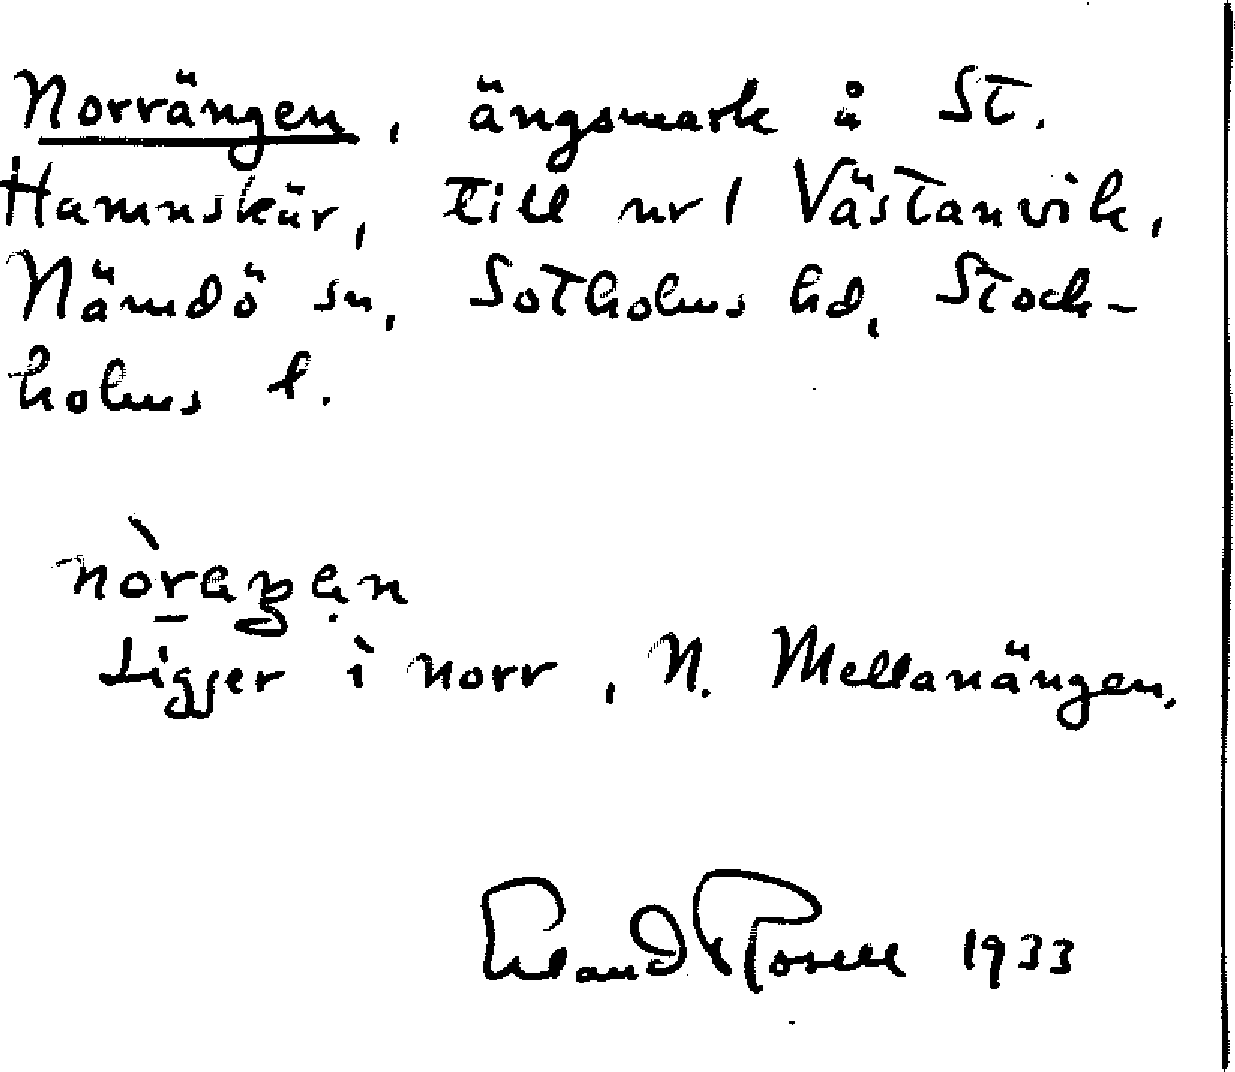 Norrängen, ängsmark å St.
Hamnskär, till nr 1 Västanvik,
Nämdö sn, Sotholms hd, Stock-
holms l.
nòraŋən
Ligger i norr, N. Mellanängen.
Erland Rosell 1933